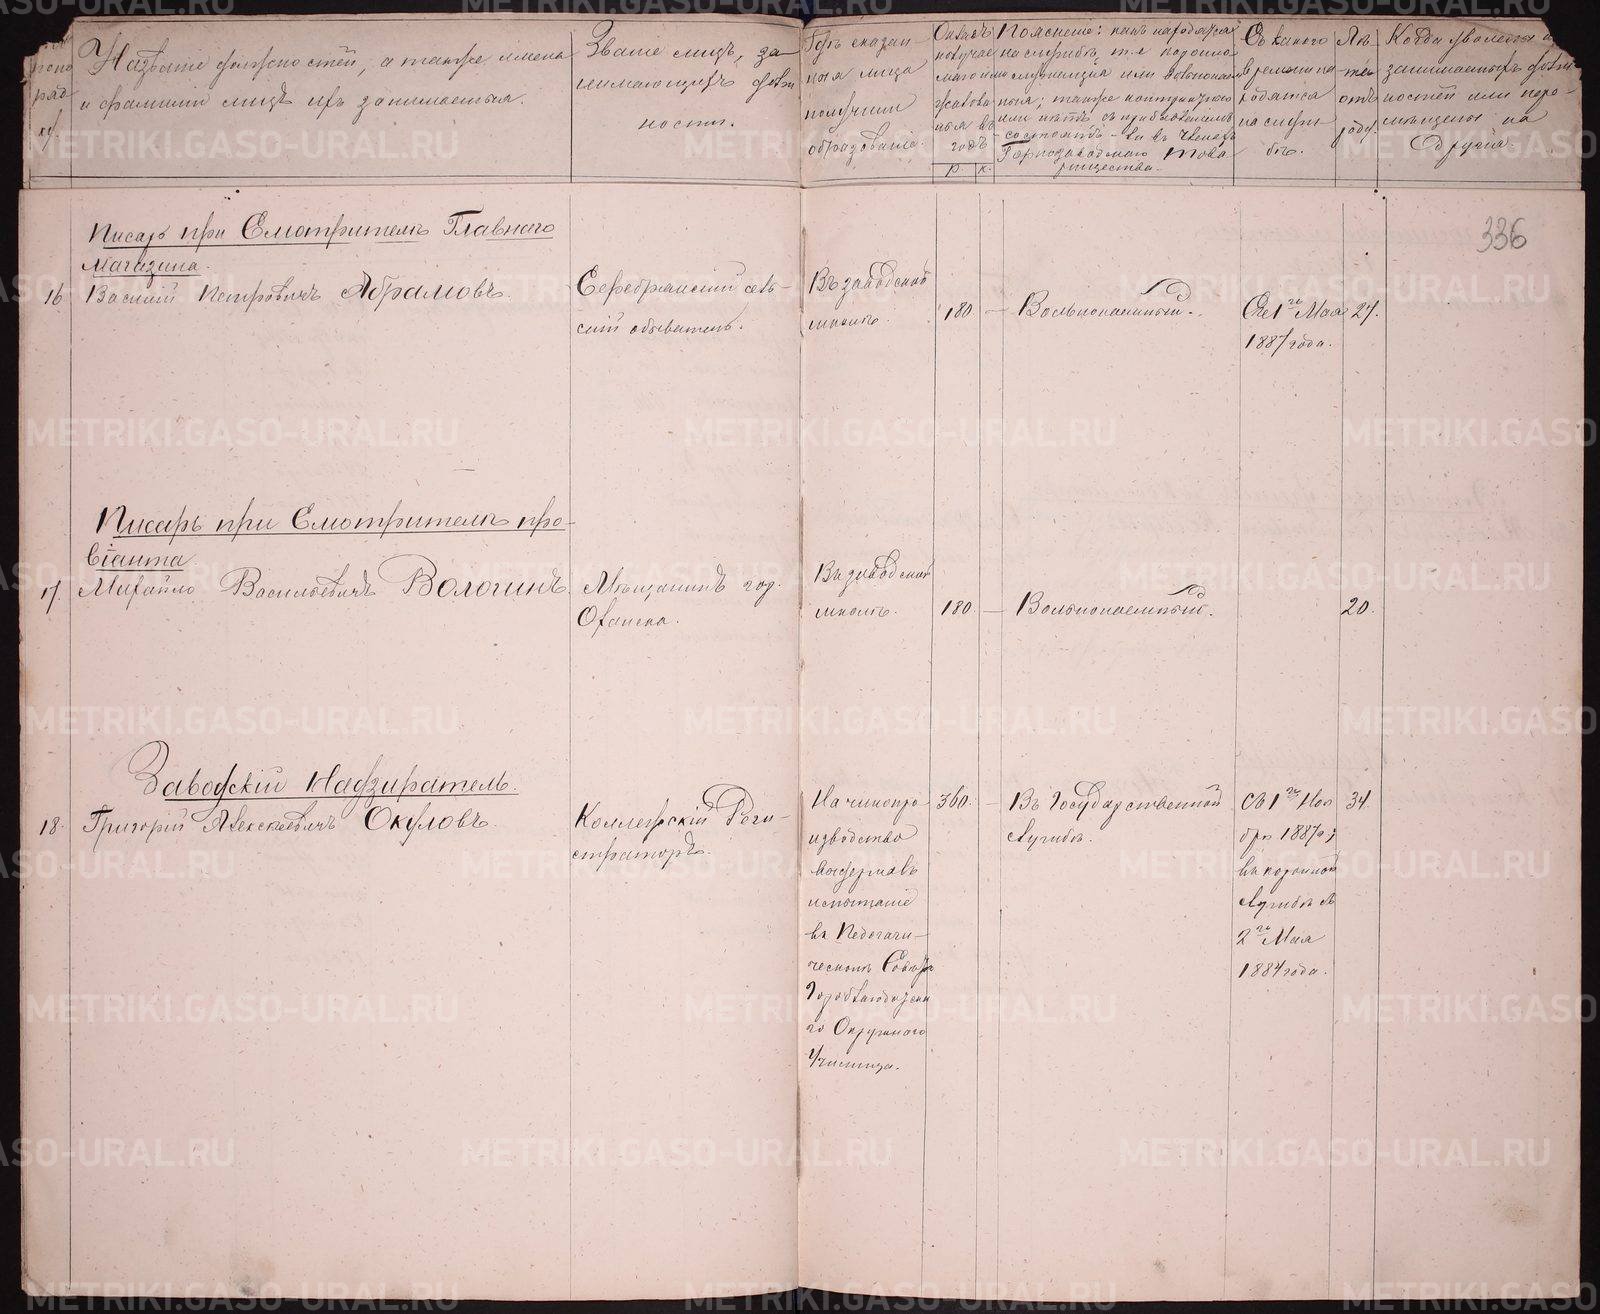 по
поряд
ку.
Названіе должностей, а также имена
и фамиліи лицъ ихъ занимающія.
Званіе лицъ, за
нимающихъ долж
ности.
Гдѣ сказан
ныя лица
получили
образованіе.
Окладъ
получае
маго
жалова
нья въ
годъ
р. к.
Поясненіе: какъ находятся
на службѣ, т.е. коронно
служащій или вольнонаем
ныя; также контрактово
или нѣтъ
состоятъ-ли въ членахъ
Горнозаводскаго Това
рищества.
Съ какого
времени на
ходятся
на служ
бѣ.
Лѣ
та
отъ
роду.
Когда уволены отъ
занимаемыхъ долж
ностей или пере-
мѣщены на
другія.
336
Писарь при Смотрителѣ Главнаго
Магазина.
16. Василій Петровичъ Абрамовъ.
Серебрянскій сель-
скій обыватель.
Въ заводской
школѣ.
180 — Вольнонаемный.
Съ 1го Мая
1887 года.
27.
Писарь при Смотрителѣ про-
віанта
17. Михайло Васильевичъ Вологинъ.
Мѣщанинъ гор.
Оханска.
Въ заводской
школѣ.
180 — Вольнонаемный.
20.
Заводскій Надзиратель.
18. Григорій Алексѣевичъ Окуловъ.
Коллежскій Реги-
страторъ.
На чинопро-
изводство
выдержалъ
испытаніе
въ Педагоги-
ческомъ Совѣтѣ
Горо
го Окружного
Училища.
360. — Въ Государственной
службѣ.
Съ 1го Ноя
бря 1887 г;
въ коронной
службѣ съ
2го Мая
1884 года.
34.
METRIKI.GASO-URAL.RU